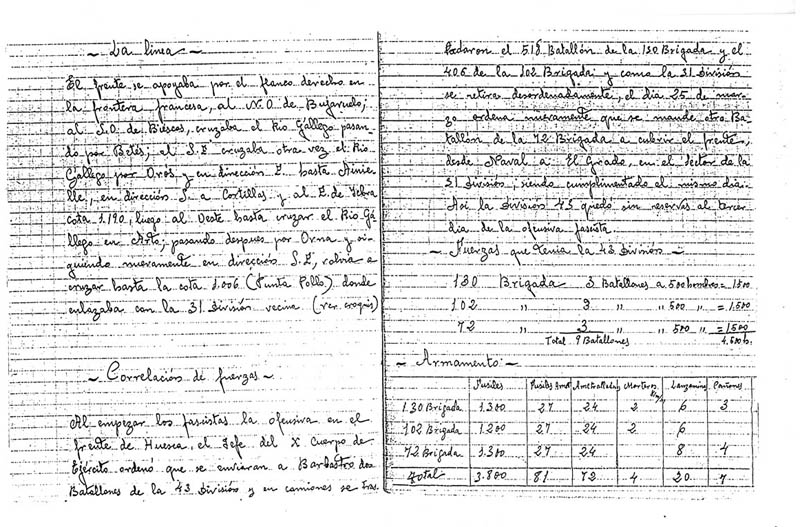 - La línea -
El frente se apoyaba por el flanco derecho en
la frontera francesa, al N.O. de Bujaruelo;
al S.O. de Biescas, cruzaba el Río Gállego pasan-
do por Betés; al S.E. cruzaba otra vez el Río
Gállego por Oros y en dirección E. hasta Ainie-
lle, en dirección S. a Cortillas y al E. de Yebra
cota 1.190, luego al Oeste hasta cruzar el Río Gá-
llego en Arto; pasando despues por Orna y si-
guiendo nuevamente en dirección S.E, volvia a
cruzar hasta la cota 1.006 (Punta Pollo) donde
enlazaba con la 31 División vecina (ver croquis)
- Correlación de fuerzas -
Al empezar los fascistas la ofensiva en el
frente de Huesca, el Jefe del X Cuerpo de
Ejército ordenó que se enviaran a Barbastro dos
Batallones de la 43 División y en camiones se tras-
ladaron el 518 Batallón de la 130 Brigada y el
406 de la 102 Brigada y como la 31 División
se retira desordenadamente, el dia 25 de mar-
zo ordena nuevamente que se mande otro Ba-
tallón de la 72 Brigada a cubrir el frente,
desde Naval a El Grado, en el sector de la
31 División; siendo cumplimentado el mismo dia.
Asi la División 43 quedó sin reservas al tercer
dia de la ofensiva fascista.
- Fuerzas que tenia la 43 División -
130 Brigada 3 Batallones a 500 hombres = 1500
102 " 3 " " 500 " = 1.500
72 " 3 " " 500 " = 1500
Total 9 Batallones 4.500 h.
- Armamento -
Fusiles Fusiles Amet Ametralladoras Morteros Lanzaminas Cañones
130 Brigada 1.300 27 24 2 6 3
102 Brigada 1.200 27 24 2 6
72 Brigada 1.300 27 24 8 4
Total 3.800 81 72 4 20 7